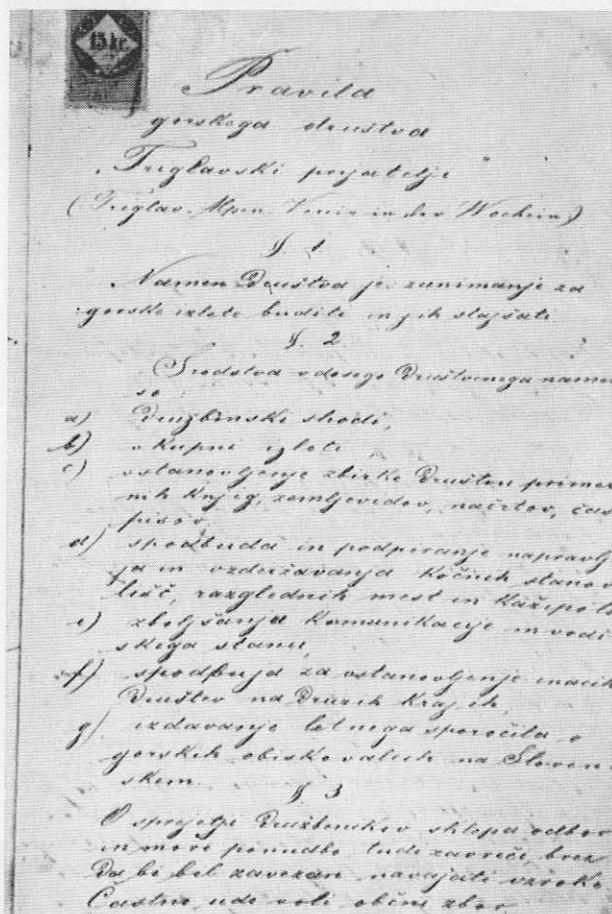 15 kr.
Pravila
gorskega društva
„Triglavski prijatelji"
(Triglav-Alpen-Verein in der Wochein)
§. 1
Namen Društva je: zanimanje za
gorske izlete buditi in jih olajšati
§. 2
Sredstva v dosego Društvenega namena
so:
a) Družbinski shodi,
b) skupni izleti
c) vstanovljenje zbirke Društvu primer
nih knjig, zemljevidov, načrtov, čas
pisov,
d) spodbuda in podpiranje napravlj
ja in vzderžavanja kočnih stanov
lišč, razglednih mest in kažipotov
e) zboljšanja komunikacije in vodi
škega stanu,
f) spodbuja za vstanovljenje enacih
Društev na druzih krajih,
g) izdavanje letnega sporočila o
gorskih obiskovalcih na Sloven
skem.
§ 3
O sprejetji Družbenikov sklepa odbor
in more ponudbo tudi zavreči, brez
da bi bil zavezan navajati vzroke
Častne ude voli občni zbor